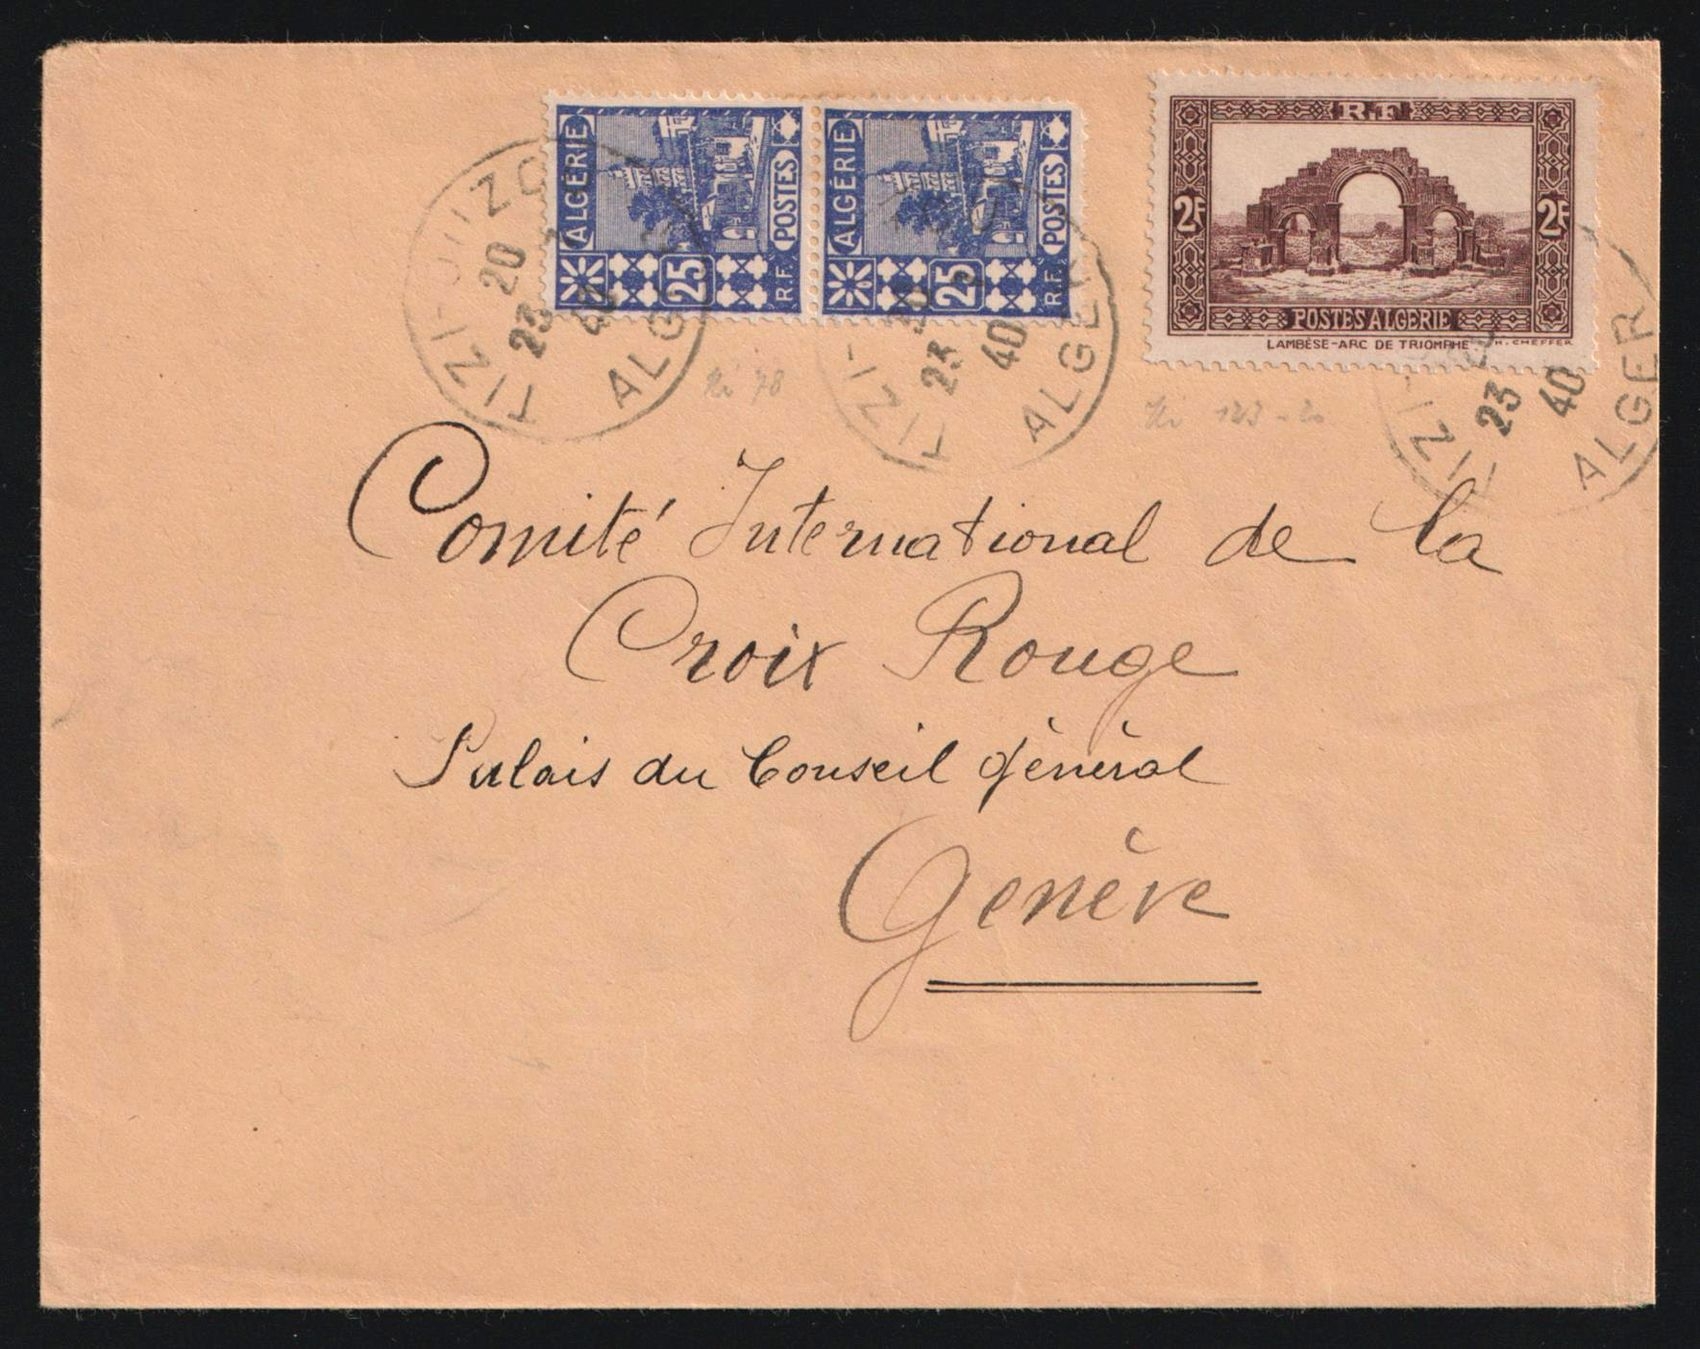 ALGÉRIE POSTES 25 R.F.
ALGÉRIE POSTES 25 R.F.
R.F
2F 2F
POSTES ALGERIE
LAMBÈSE-ARC DE TRIOMPHE H. CHEFFER
TIZI-OUZO
20
23
40
ALGER
TIZI-
23
40
ALGER
TIZI-
23
40
ALGER
Mi 78
Comité International de la
Croix Rouge
Palais du Conseil général
Genève